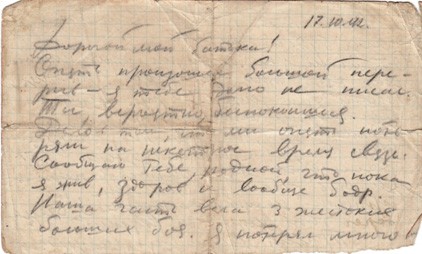 17.10.42.
Дорогой мой батька!
Опять произошел большой пере-
рыв – я тебе давно не писал.
Ты, вероятно, беспокоишься.
Дело в том, что мы опять поте-
ряли на некоторое время связь.
Сообщаю тебе, родной, что пока
я жив, здоров и вообще бодр.
Наша часть вела 3 жестоких
больших боя. Я потерял много